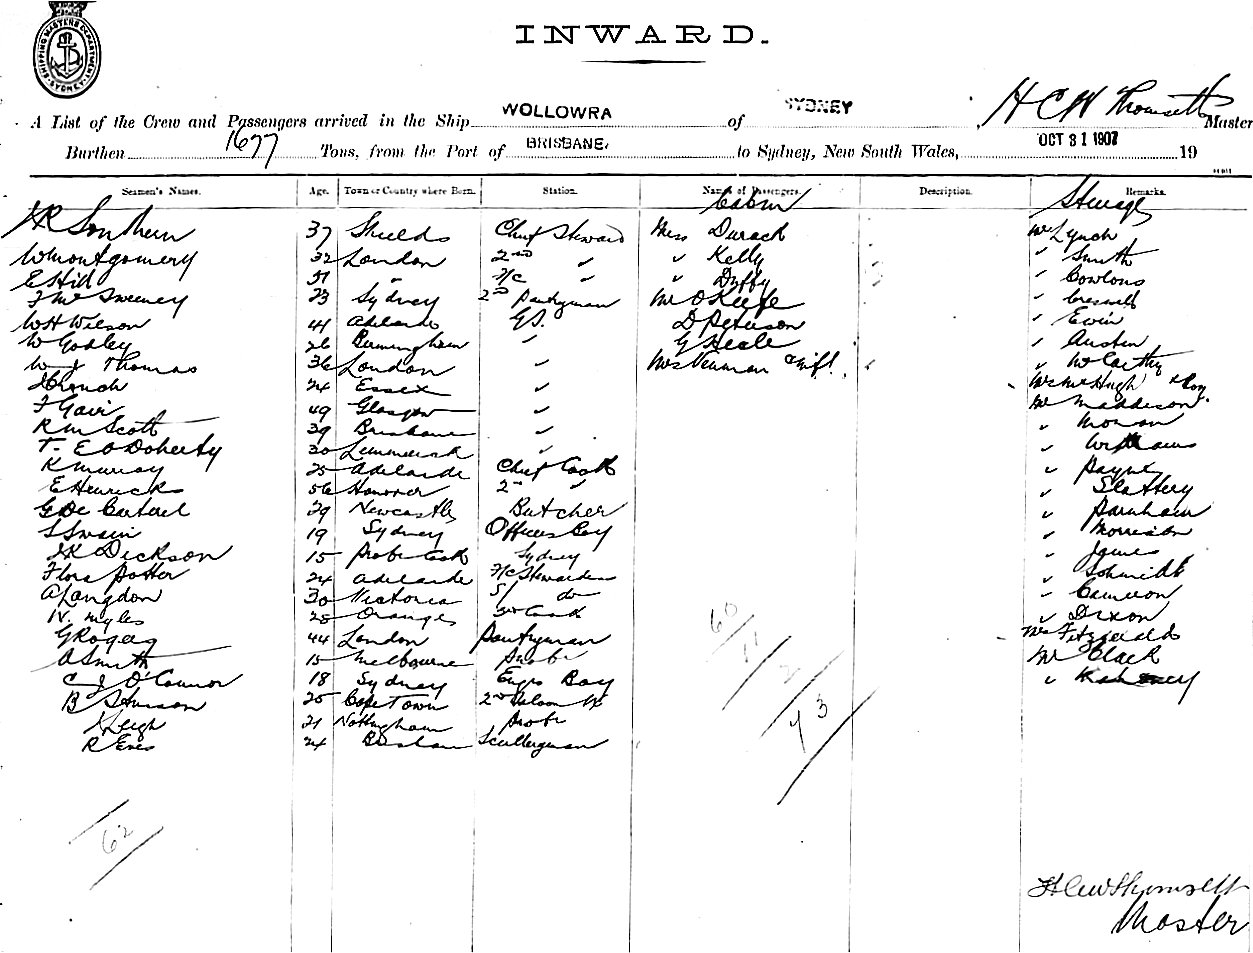 SHIPPING MASTERS DEPARTMENT SYDNEY
INWARD.
A List of the Crew and Passengers arrived in the Ship WOLLOWRA of SYDNEY H C W Thomsett Master
Burthen 1677 Tons, from the Port of BRISBANE, to Sydney, New South Wales, OCT 31 1907 19
Seamen's Names. Age. Town or Country where Born. Station. Names of Passengers. Description. Remarks.
Cabin Steerage
Southern 37 Shields Chief Steward Miss Durack Mr Lynch
W Montgomery 32 London 2nd " " Kelly " Smith
E Hill 51 " F/C " " Duffy "
F McSweeney 23 Sydney 2nd Pantryman Mr O'Keefe "
W H Wilson 41 Adelaide G.S. D Peterson " Ewin
W Godley 26 Birmingham " G Heale " Austen
W J Thomas 36 London " Mrs Newman & Inft. " McCarthy
24 Essex " Mrs McHugh & Boy
F Gair 49 Glasgow " Mr Maddison
R M Scott 39 Brisbane " " Moran
T. E O'Doherty 30 Limmerick " " Williams
K Murray 25 Adelaide Chief Cook " Payne
E Henricks 56 Hanover 2nd " " Slattery
G De 29 Newcastle Butcher " Parnham
S Swain 19 Sydney Officers Boy " Morrison
Dickson 15 Probr Cook Sydney " James
Flora Potter 24 Adelaide F/C Stewardess " Schmidt
A Langdon 30 Victoria S/ do " Cameron
N. Myles 28 Orange 3rd Cook " Dixon
G Rogers 44 London Pantryman Mrs Fitzgerald
A Smith 15 Melbourne Probr Mr Clack
C J O'Connor 18 Sydney Engrs Boy "
B 25 Cape Town 2nd Saloon W
Leigh 21 Nottingham Probr
R Eves 24 Sculleryman
60
11
2
73
62
H C W Thomsett
Master